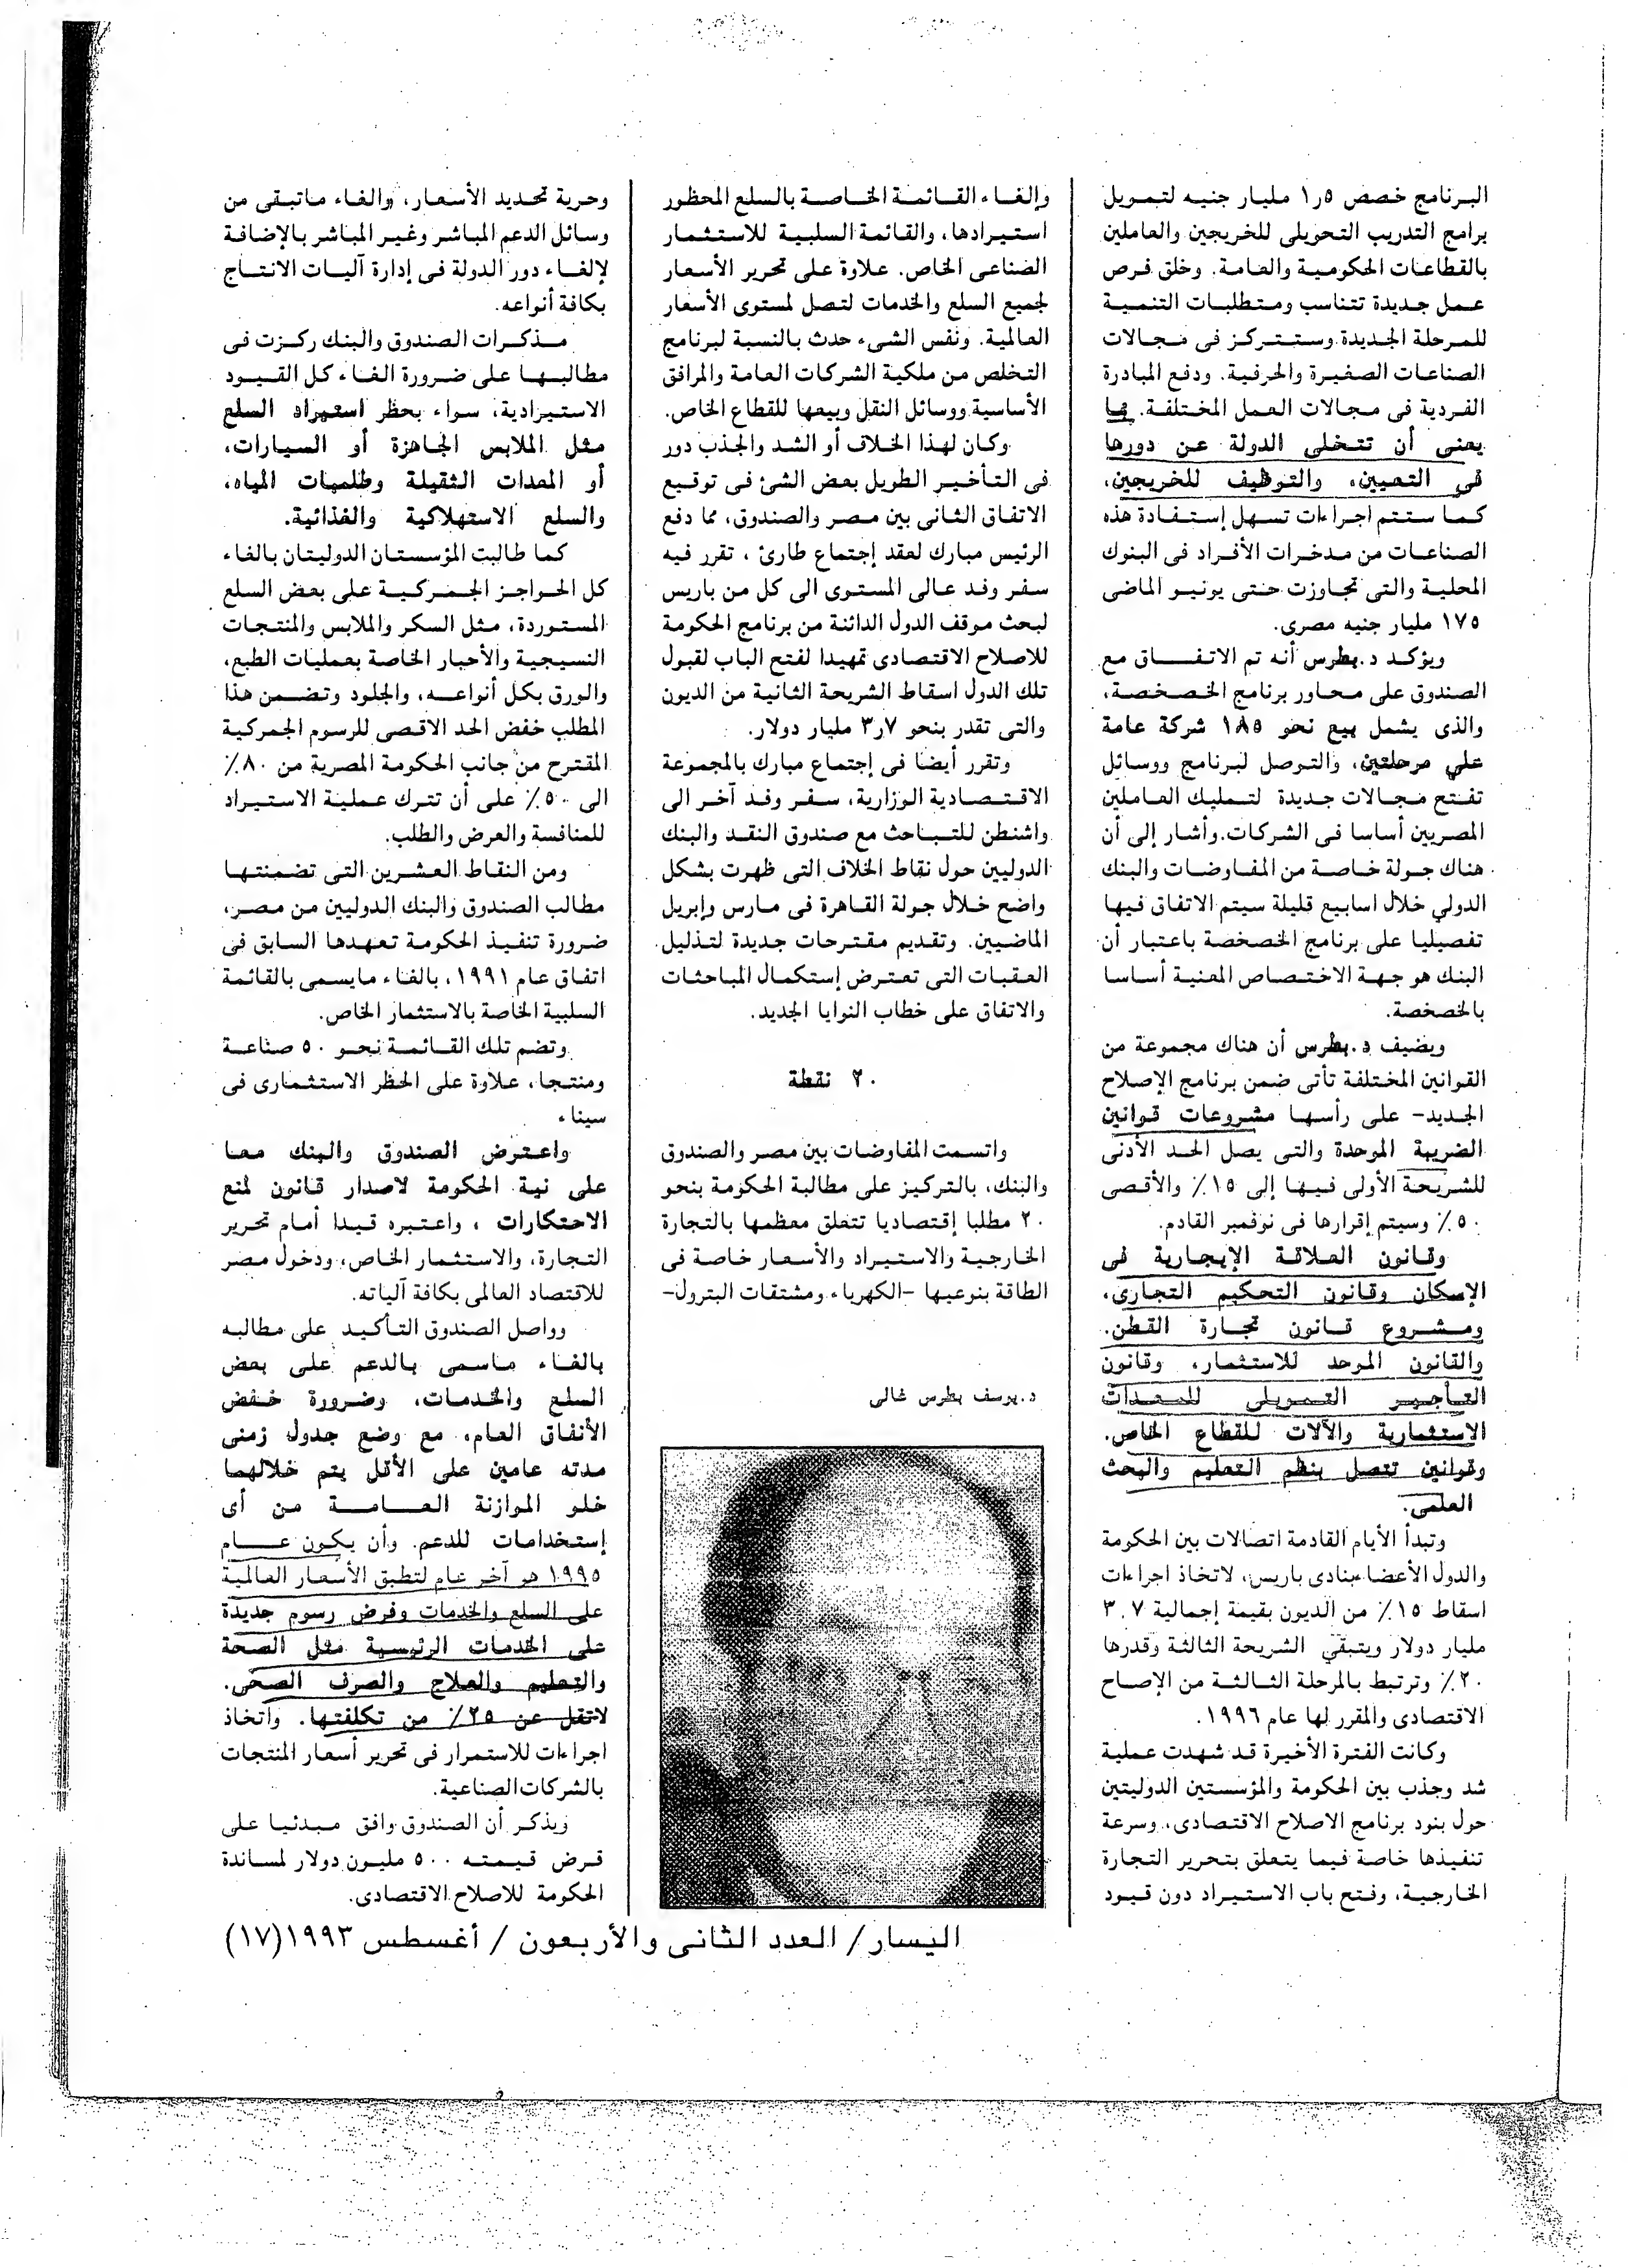 البرنامج خصص ١٫٥ مليار جنيه لتمويل
برامج التدريب التحويلى للخريجين والعاملين
بالقطاعات الحكومية والعامة. وخلق فرص
عمل جديدة تتناسب ومتطلبات التنمية
للمرحلة الجديدة وستتركز فى مجالات
الصناعات الصغيرة والحرفية. ودفع المبادرة
الفردية فى مجالات العمل المختلفة. بما
يعنى أن تتخلى الدولة عن دورها
فى التعيين، والتوظيف للخريجين،
كما ستتم اجراءات تسهل إستفادة هذه
الصناعات من مدخرات الأفراد فى البنوك
المحلية والتى تجاوزت حتى يونيو الماضى
١٧٥ مليار جنيه مصرى.
ويؤكد د.بطرس أنه تم الاتفاق مع
الصندوق على محاور برنامج الخصخصة،
والذى يشمل بيع نحو ١٨٥ شركة عامة
على مرحلتين، والتوصل لبرنامج ووسائل
تفتح مجالات جديدة لتمليك العاملين
المصريين أساسا فى الشركات.وأشار إلى أن
هناك جولة خاصة من المفاوضات والبنك
الدولي خلال اسابيع قليلة سيتم الاتفاق فيها
تفصيليا على برنامج الخصخصة باعتبار أن
البنك هو جهة الاختصاص المعنية أساسا
بالخصخصة.
ويضيف د.بطرس أن هناك مجموعة من
القوانين المختلفة تأتى ضمن برنامج الإصلاح
الجديد- على رأسها مشروعات قوانين
الضريبة الموحدة والتى يصل الحد الأدنى
للشريحة الأولى فيها إلى ١٥٪ والأقصى
٥٠٪ وسيتم إقرارها فى نوفمبر القادم.
وقانون العلاقة الإيجارية فى
الإسكان وقانون التحكيم التجارى،
ومشروع قانون تجارة القطن.
والقانون الموحد للاستثمار، وقانون
التأجير التمويلى للمعدات
الاستثمارية والآلات للقطاع الخاص.
وقوانين تتصل بنظم التعليم والبحث
العلمى.
وتبدأ الأيام القادمة اتصالات بين الحكومة
والدول الأعضاء بنادى باريس، لاتخاذ اجراءات
اسقاط ١٥٪ من الديون بقيمة إجمالية ٣٫٧
مليار دولار ويتبقى الشريحة الثالثة وقدرها
٢٠٪ وترتبط بالمرحلة الثالثة من الإصاح
الاقتصادى والمقرر لها عام ١٩٩٦.
وكانت الفترة الأخيرة قد شهدت عملية
شد وجذب بين الحكومة والمؤسستين الدوليتين
حول بنود برنامج الاصلاح الاقتصادى، وسرعة
تنفيذها خاصة فيما يتعلق بتحرير التجارة
الخارجية، وفتح باب الاستيراد دون قيود
وإلغاء القائمة الخاصة بالسلع المحظور
استيرادها، والقائمة السلبية للاستثمار
الصناعى الخاص. علاوة على تحرير الأسعار
لجميع السلع والخدمات لتصل لمستوى الأسعار
العالمية. ونفس الشىء حدث بالنسبة لبرنامج
التخلص من ملكية الشركات العامة والمرافق
الأساسية ووسائل النقل وبيعها للقطاع الخاص.
وكان لهذا الخلاف أو الشد والجذب دور
فى التأخير الطويل بعض الشئ فى توقيع
الاتفاق الثانى بين مصر والصندوق، مما دفع
الرئيس مبارك لعقد إجتماع طارئ ، تقرر فيه
سفر وفد عالى المستوى الى كل من باريس
لبحث موقف الدول الدائنة من برنامج الحكومة
للاصلاح الاقتصادى تمهيدا لفتح الباب لقبول
تلك الدول اسقاط الشريحة الثانية من الديون
والتى تقدر بنحو ٣٫٧ مليار دولار.
وتقرر أيضا فى إجتماع مبارك بالمجموعة
الاقتصادية الوزارية، سفر وفد آخر الى
واشنطن للتباحث مع صندوق النقد والبنك
الدوليين حول نقاط الخلاف التى ظهرت بشكل
واضح خلال جولة القاهرة فى مارس وإبريل
الماضيين. وتقديم مقترحات جديدة لتذليل
العقبات التى تعترض إستكمال المباحثات
والاتفاق على خطاب النوايا الجديد.
٢٠ نقطة
واتسمت المفاوضات بين مصر والصندوق
والبنك، بالتركيز على مطالبة الحكومة بنحو
٢٠ مطلبا إقتصاديا تتعلق معظمها بالتجارة
الخارجية والاستيراد والأسعار خاصة فى
الطاقة بنوعيها -الكهرباء ومشتقات البترول-
د.يوسف بطرس غالى
وحرية تحديد الأسعار، والغاء ماتبقى من
وسائل الدعم المباشر وغير المباشر بالإضافة
لإلغاء دور الدولة فى إدارة آليات الانتاج
بكافة أنواعه.
مذكرات الصندوق والبنك ركزت فى
مطالبها على ضرورة الغاء كل القيود
الاستيرادية، سواء بحظر استيراد السلع
مثل الملابس الجاهزة أو السيارات،
أو المعدات الثقيلة وطلمبات المياه،
والسلع الاستهلاكية والغذائية.
كما طالبت المؤسستان الدوليتان بالغاء
كل الحواجز الجمركية على بعض السلع
المستوردة، مثل السكر والملابس والمنتجات
النسيجية والأحبار الخاصة بعمليات الطبع،
والورق بكل أنواعه، والجلود وتضمن هذا
المطلب خفض الحد الاقصى للرسوم الجمركية
المقترح من جانب الحكومة المصرية من ٨٠٪
الى ٥٠٪ على أن تترك عملية الاستيراد
للمنافسة والعرض والطلب.
ومن النقاط العشرين التى تضمنتها
مطالب الصندوق والبنك الدوليين من مصر،
ضرورة تنفيذ الحكومة تعهدها السابق فى
اتفاق عام ١٩٩١، بالغاء مايسمى بالقائمة
السلبية الخاصة بالاستثمار الخاص.
وتضم تلك القائمة نحو ٥٠ صناعة
ومنتجا، علاوة على الحظر الاستثمارى فى
سيناء
واعترض الصندوق والبنك معا
على نية الحكومة لاصدار قانون لمنع
الاحتكارات ، واعتبره قيدا أمام تحرير
التجارة، والاستثمار الخاص، ودخول مصر
للاقتصاد العالمى بكافة آلياته.
وواصل الصندوق التأكيد على مطالبه
بالغاء ماسمى بالدعم على بعض
السلع والخدمات، وضرورة خفض
الأنفاق العام، مع وضع جدول زمنى
مدته عامين على الأقل يتم خلالهما
خلو الموازنة العامة من أى
إستخدامات للدعم. وأن يكون عام
١٩٩٥ هو آخر عام لتطبق الأسعار العالمية
على السلع والخدمات وفرض رسوم جديدة
على الخدمات الرئيسية مثل الصحة
والتعليم والعلاج والصرف الصحى.
لاتقل عن ٢٥٪ من تكلفتها. واتخاذ
اجراءات للاستمرار فى تحرير أسعار المنتجات
بالشركات الصناعية.
ويذكر أن الصندوق وافق مبدئيا على
قرض قيمته ٥٠٠ مليون دولار لمساندة
الحكومة للاصلاح الاقتصادى.
اليسار/ العدد الثانى والأربعون / أغسطس ١٩٩٣(١٧)